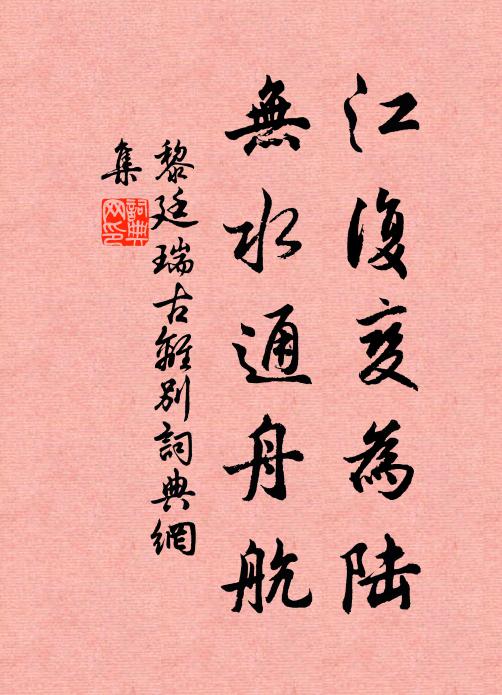 江復變為陆
無水通舟航
黎廷瑞古離別詞典網
集
詞典
网印